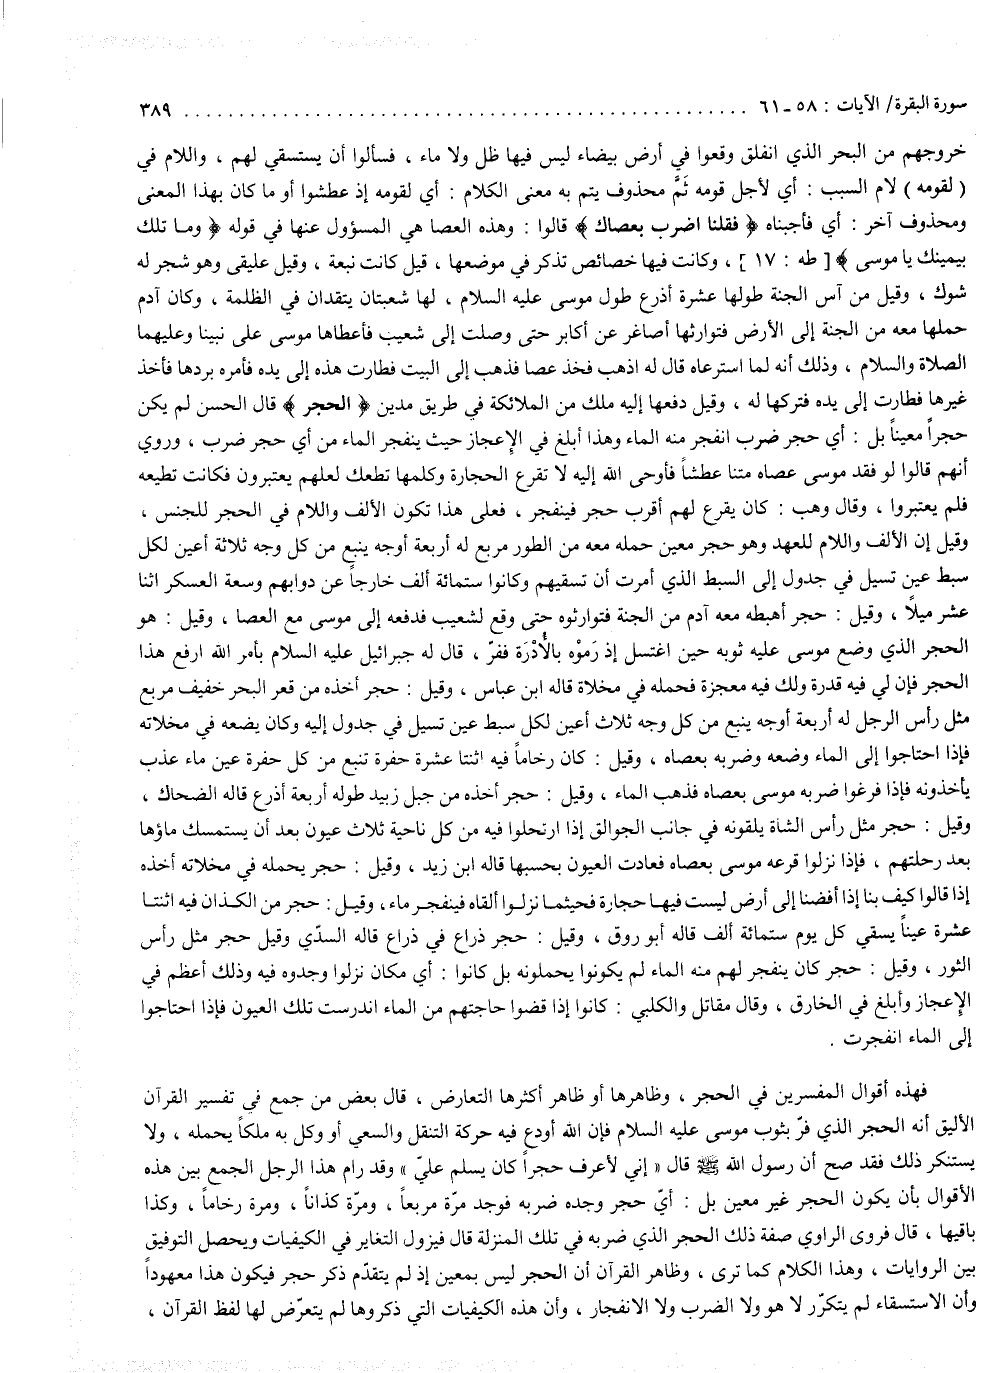 سورة البقرة/ الآيات : ٥٨ ـ ٦١ ................................................ ٣٨٩
خروجهم من البحر الذي انفلق وقعوا في أرض بيضاء ليس فيها ظل ولا ماء ، فسألوا أن يستسقي لهم ، واللام في
( لقومه ) لام السبب : أي لأجل قومه ثَمَّ محذوف يتم به معنى الكلام : أي لقومه إذ عطشوا أو ما كان بهذا المعنى
ومحذوف آخر : أي فأجبناه ﴿ فقلنا اضرب بعصاك ﴾ قالوا : وهذه العصا هي المسؤول عنها في قوله ﴿ وما تلك
بيمينك يا موسى ﴾ [ طه : ١٧ ] ، وكانت فيها خصائص تذكر في موضعها ، قيل كانت نبعة ، وقيل عليقى وهو شجر له
شوك ، وقيل من آس الجنة طولها عشرة أذرع طول موسى عليه السلام ، لها شعبتان يتقدان في الظلمة ، وكان آدم
حملها معه من الجنة إلى الأرض فتوارثها أصاغر عن أكابر حتى وصلت إلى شعيب فأعطاها موسى على نبينا وعليهما
الصلاة والسلام ، وذلك أنه لما استرعاه قال له اذهب فخذ عصا فذهب إلى البيت فطارت هذه إلى يده فأمره بردها فأخذ
غيرها فطارت إلى يده فتركها له ، وقيل دفعها إليه ملك من الملائكة في طريق مدين ﴿ الحجر ﴾ قال الحسن لم يكن
حجراً معيناً بل : أي حجر ضرب انفجر منه الماء وهذا أبلغ في الإعجاز حيث ينفجر الماء من أي حجر ضرب ، وروي
أنهم قالوا لو فقد موسى عصاه متنا عطشاً فأوحى الله إليه لا تقرع الحجارة وكلمها تطعك لعلهم يعتبرون فكانت تطيعه
فلم يعتبروا ، وقال وهب : كان يقرع لهم أقرب حجر فينفجر ، فعلى هذا تكون الألف واللام في الحجر للجنس ،
وقيل إن الألف واللام للعهد وهو حجر معين حمله معه من الطور مربع له أربعة أوجه ينبع من كل وجه ثلاثة أعين لكل
سبط عين تسيل في جدول إلى السبط الذي أمرت أن تسقيهم وكانوا ستمائة ألف خارجاً عن دوابهم وسعة العسكر اثنا
عشر ميلًا ، وقيل : حجر أهبطه معه آدم من الجنة فتوارثوه حتى وقع لشعيب فدفعه إلى موسى مع العصا ، وقيل : هو
الحجر الذي وضع موسى عليه ثوبه حين اغتسل إذ رَمَوْه بالْأُدْرَة ففرّ ، قال له جبرائيل عليه السلام بأمر الله ارفع هذا
الحجر فإن لي فيه قدرة ولك فيه معجزة فحمله في مخلاة قاله ابن عباس ، وقيل : حجر أخذه من قعر البحر خفيف مربع
مثل رأس الرجل له أربعة أوجه ينبع من كل وجه ثلاث أعين لكل سبط عين تسيل في جدول إليه وكان يضعه في مخلاته
فإذا احتاجوا إلى الماء وضعه وضربه بعصاه ، وقيل : كان رخاماً فيه اثنتا عشرة حفرة تنبع من كل حفرة عين ماء عذب
يأخذونه فإذا فرغوا ضربه موسى بعصاه فذهب الماء ، وقيل : حجر أخذه من جبل زبيد طوله أربعة أذرع قاله الضحاك ،
وقيل : حجر مثل رأس الشاة يلقونه في جانب الجوالق إذا ارتحلوا فيه من كل ناحية ثلاث عيون بعد أن يستمسك ماؤها
بعد رحلتهم ، فإذا نزلوا قرعه موسى بعصاه فعادت العيون بحسبها قاله ابن زيد ، وقيل : حجر يحمله في مخلاته أخذه
إذا قالوا كيف بنا إذا أفضنا إلى أرض ليست فيها حجارة فحيثما نزلوا ألقاه فينفجر ماء، وقيل: حجر من الكذان فيه اثنتا
عشرة عيناً يسقي كل يوم ستمائة ألف قاله أبو روق ، وقيل : حجر ذراع في ذراع قاله السدّي وقيل حجر مثل رأس
الثور ، وقيل : حجر كان ينفجر لهم منه الماء لم يكونوا يحملونه بل كانوا : أي مكان نزلوا وجدوه فيه وذلك أعظم في
الإعجاز وأبلغ في الخارق ، وقال مقاتل والكلبي : كانوا إذا قضوا حاجتهم من الماء اندرست تلك العيون فإذا احتاجوا
إلى الماء انفجرت .
فهذه أقوال المفسرين في الحجر ، وظاهرها أو ظاهر أكثرها التعارض ، قال بعض من جمع في تفسير القرآن
الأليق أنه الحجر الذي فرّ بثوب موسى عليه السلام فإن الله أودع فيه حركة التنقل والسعي أو وكل به ملكاً يحمله ، ولا
يستنكر ذلك فقد صح أن رسول الله ﷺ قال « إني لأعرف حجراً كان يسلم عليّ » وقد رام هذا الرجل الجمع بين هذه
الأقوال بأن يكون الحجر غير معين بل : أيّ حجر وجده ضربه فوجد مرّة مربعاً ، ومرّة كذاناً ، ومرة رخاماً ، وكذا
باقيها ، قال فروى الراوي صفة ذلك الحجر الذي ضربه في تلك المنزلة قال فيزول التغاير في الكيفيات ويحصل التوفيق
بين الروايات ، وهذا الكلام كما ترى ، وظاهر القرآن أن الحجر ليس بمعين إذ لم يتقدّم ذكر حجر فيكون هذا معهوداً
وأن الاستسقاء لم يتكرّر لا هو ولا الضرب ولا الانفجار ، وأن هذه الكيفيات التي ذكروها لم يتعرّض لها لفظ القرآن ،